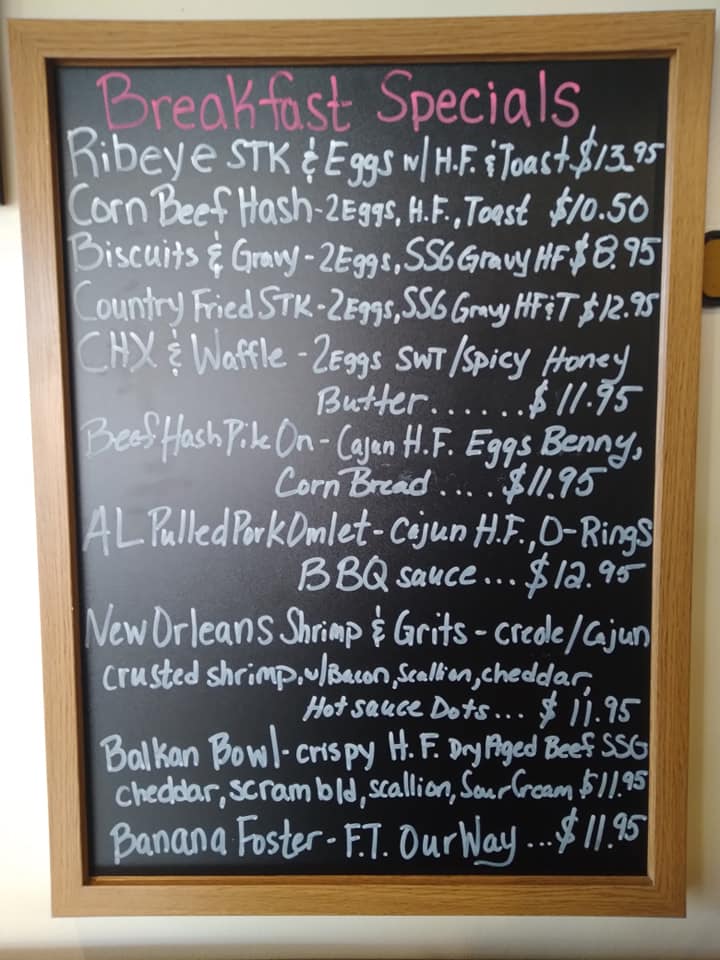 Breakfast Specials
Ribeye STK & Eggs w/ H.F. & Toast $13.95
Corn Beef Hash - 2 Eggs, H.F., Toast $10.50
Biscuits & Gravy - 2 Eggs, SSG Gravy HF $8.95
Country Fried STK - 2 Eggs, SSG Gravy HF & T $12.95
CHX & Waffle - 2 Eggs SWT/Spicy Honey
Butter...... $11.95
Beef Hash Pile On - Cajun H.F. Eggs Benny,
Corn Bread .... $11.95
AL Pulled Pork Omlet - Cajun H.F., O-Rings
BBQ sauce... $12.95
New Orleans Shrimp & Grits - creole/Cajun
crusted shrimp, w/Bacon, Scallion, cheddar,
Hot sauce Dots... $11.95
Balkan Bowl - crispy H.F. Dry Aged Beef SSG
cheddar, scrambld, scallion, Sour Cream $11.95
Banana Foster - F.T. Our Way ... $11.95